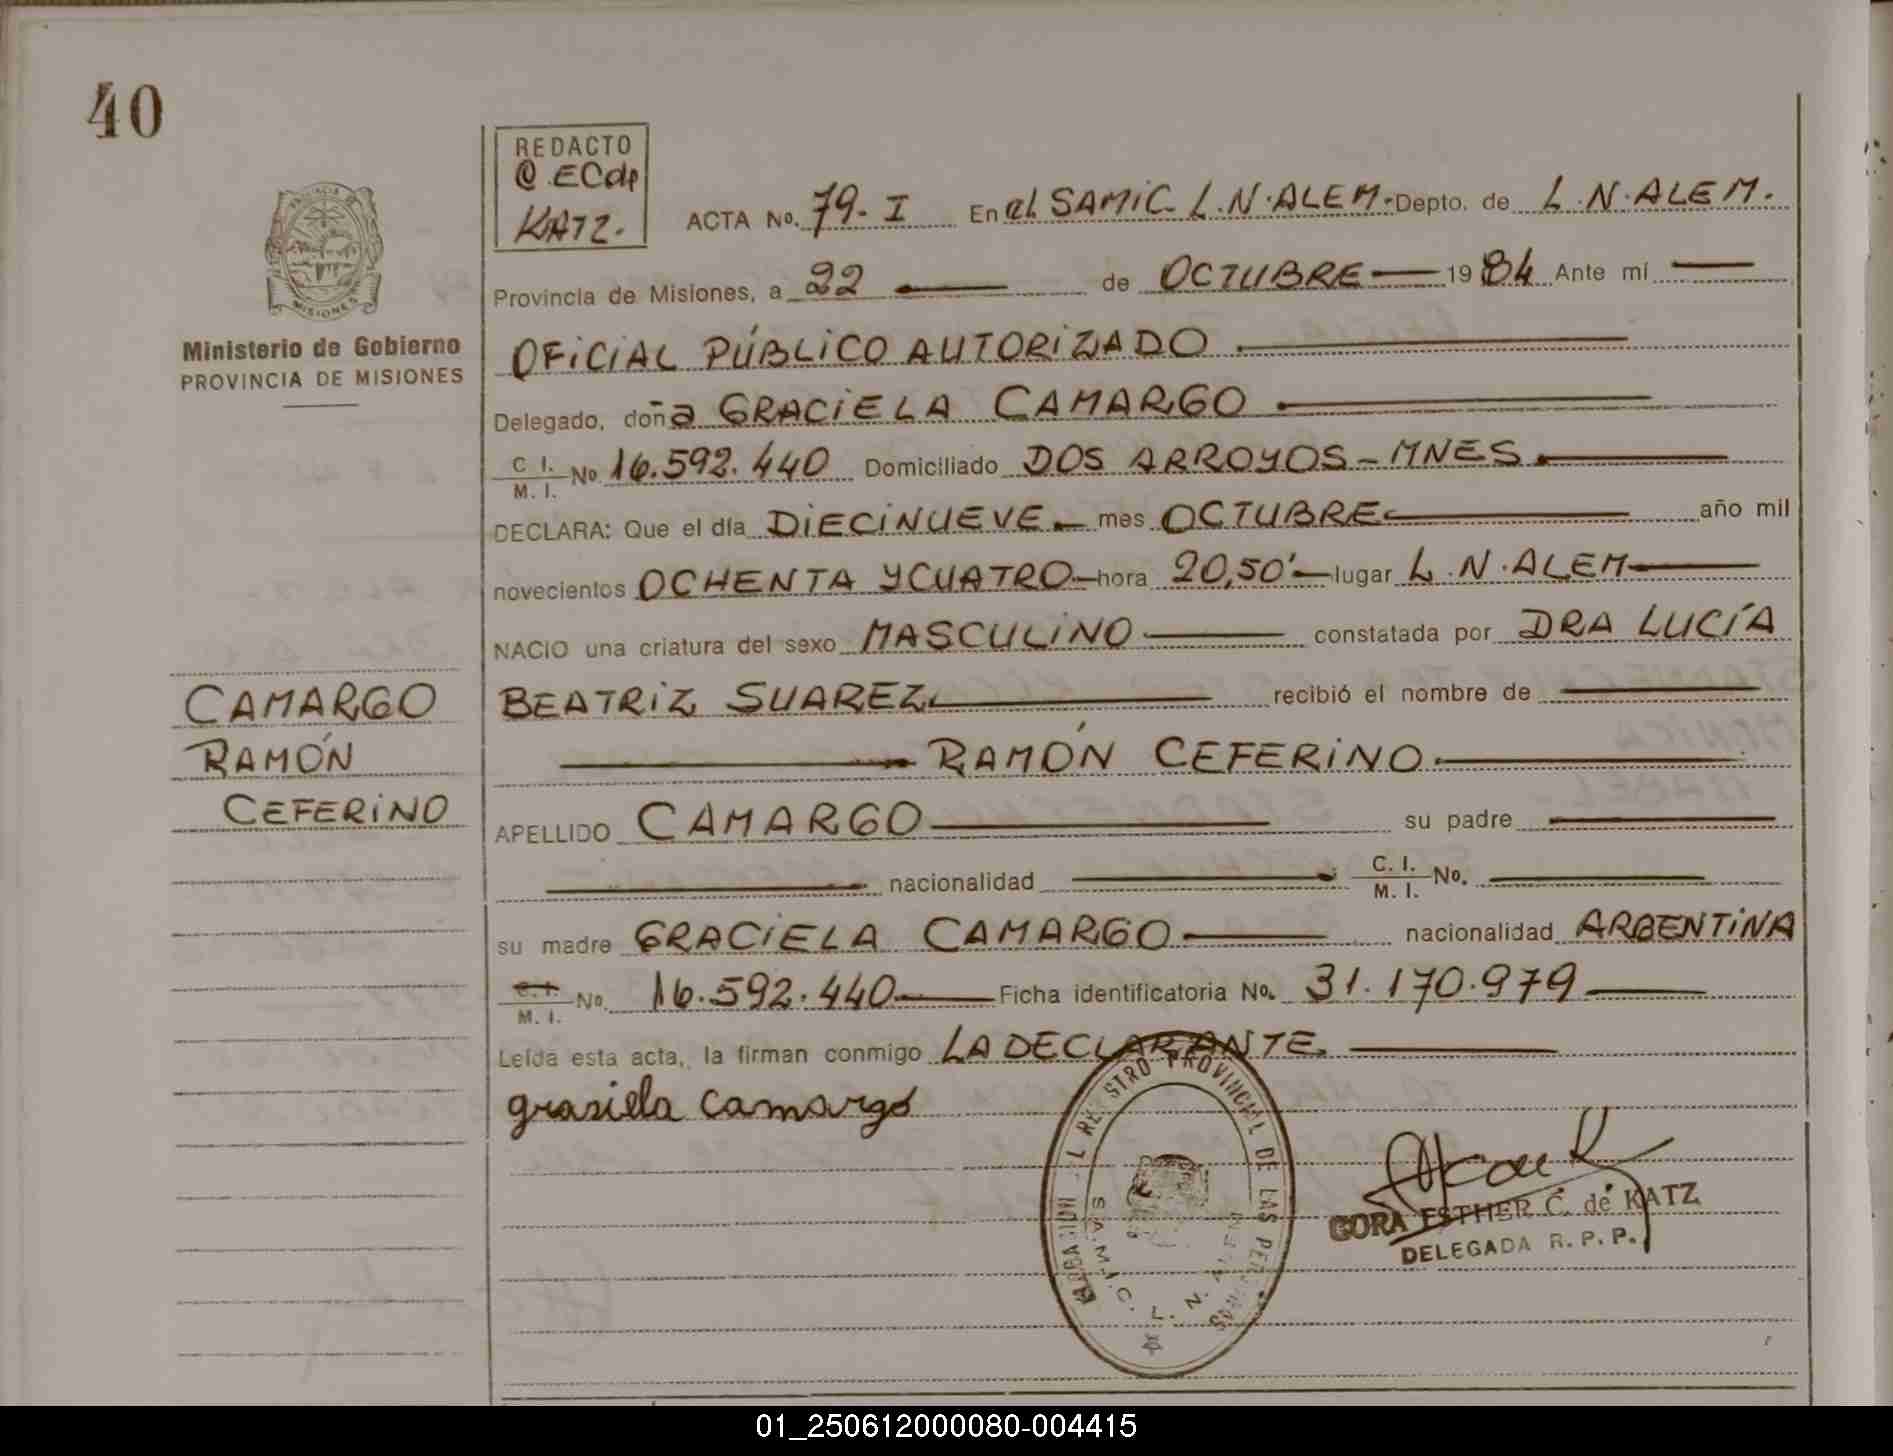 40
REDACTO
C. ECde
KATZ.
ACTA No. 79-I En el SAMIC L.N.ALEM. Depto. de L.N.ALEM.
Provincia de Misiones, a 22 de OCTUBRE 1984 Ante mí
PROVINCIA
MISIONES
Ministerio de Gobierno
PROVINCIA DE MISIONES
OFICIAL PÚBLICO AUTORIZADO
Delegado, doña GRACIELA CAMARGO
C. I.
M. I. No 16.592.440 Domiciliado DOS ARROYOS - MNES
DECLARA: Que el día DIECINUEVE mes OCTUBRE año mil
novecientos OCHENTA Y CUATRO hora 20,50' lugar L.N.ALEM
NACIO una criatura del sexo MASCULINO constatada por DRA LUCÍA
BEATRIZ SUAREZ recibió el nombre de
RAMÓN CEFERINO
CAMARGO
RAMÓN
CEFERINO
APELLIDO CAMARGO su padre
nacionalidad C. I.
M. I. No.
su madre GRACIELA CAMARGO nacionalidad ARGENTINA
C. I.
M. I. No. 16.592.440 Ficha identificatoria No. 31.170.979
Leída esta acta, la firman conmigo LA DECLARANTE.
grasiela camargo
REGISTRO PROVINCIAL DE LAS PERSONAS
S.A.M.I.C. L. N. ALEM
CORA ESTHER C. de KATZ
DELEGADA R. P. P.
01_250612000080-004415